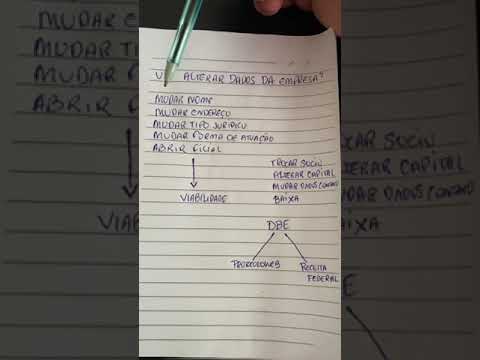 ALTERAR DADOS DA EMPRESA?
MUDAR NOME
MUDAR ENDEREÇO
MUDAR TIPO JURÍDICO
MUDAR FORMA DE ATUAÇÃO
ABRIR FILIAL
VIABILIDADE
TROCAR SOCIO
ALTERAR CAPITAL
MUDAR DADOS
BAIXA
DBE
RECEITA
FEDERAL